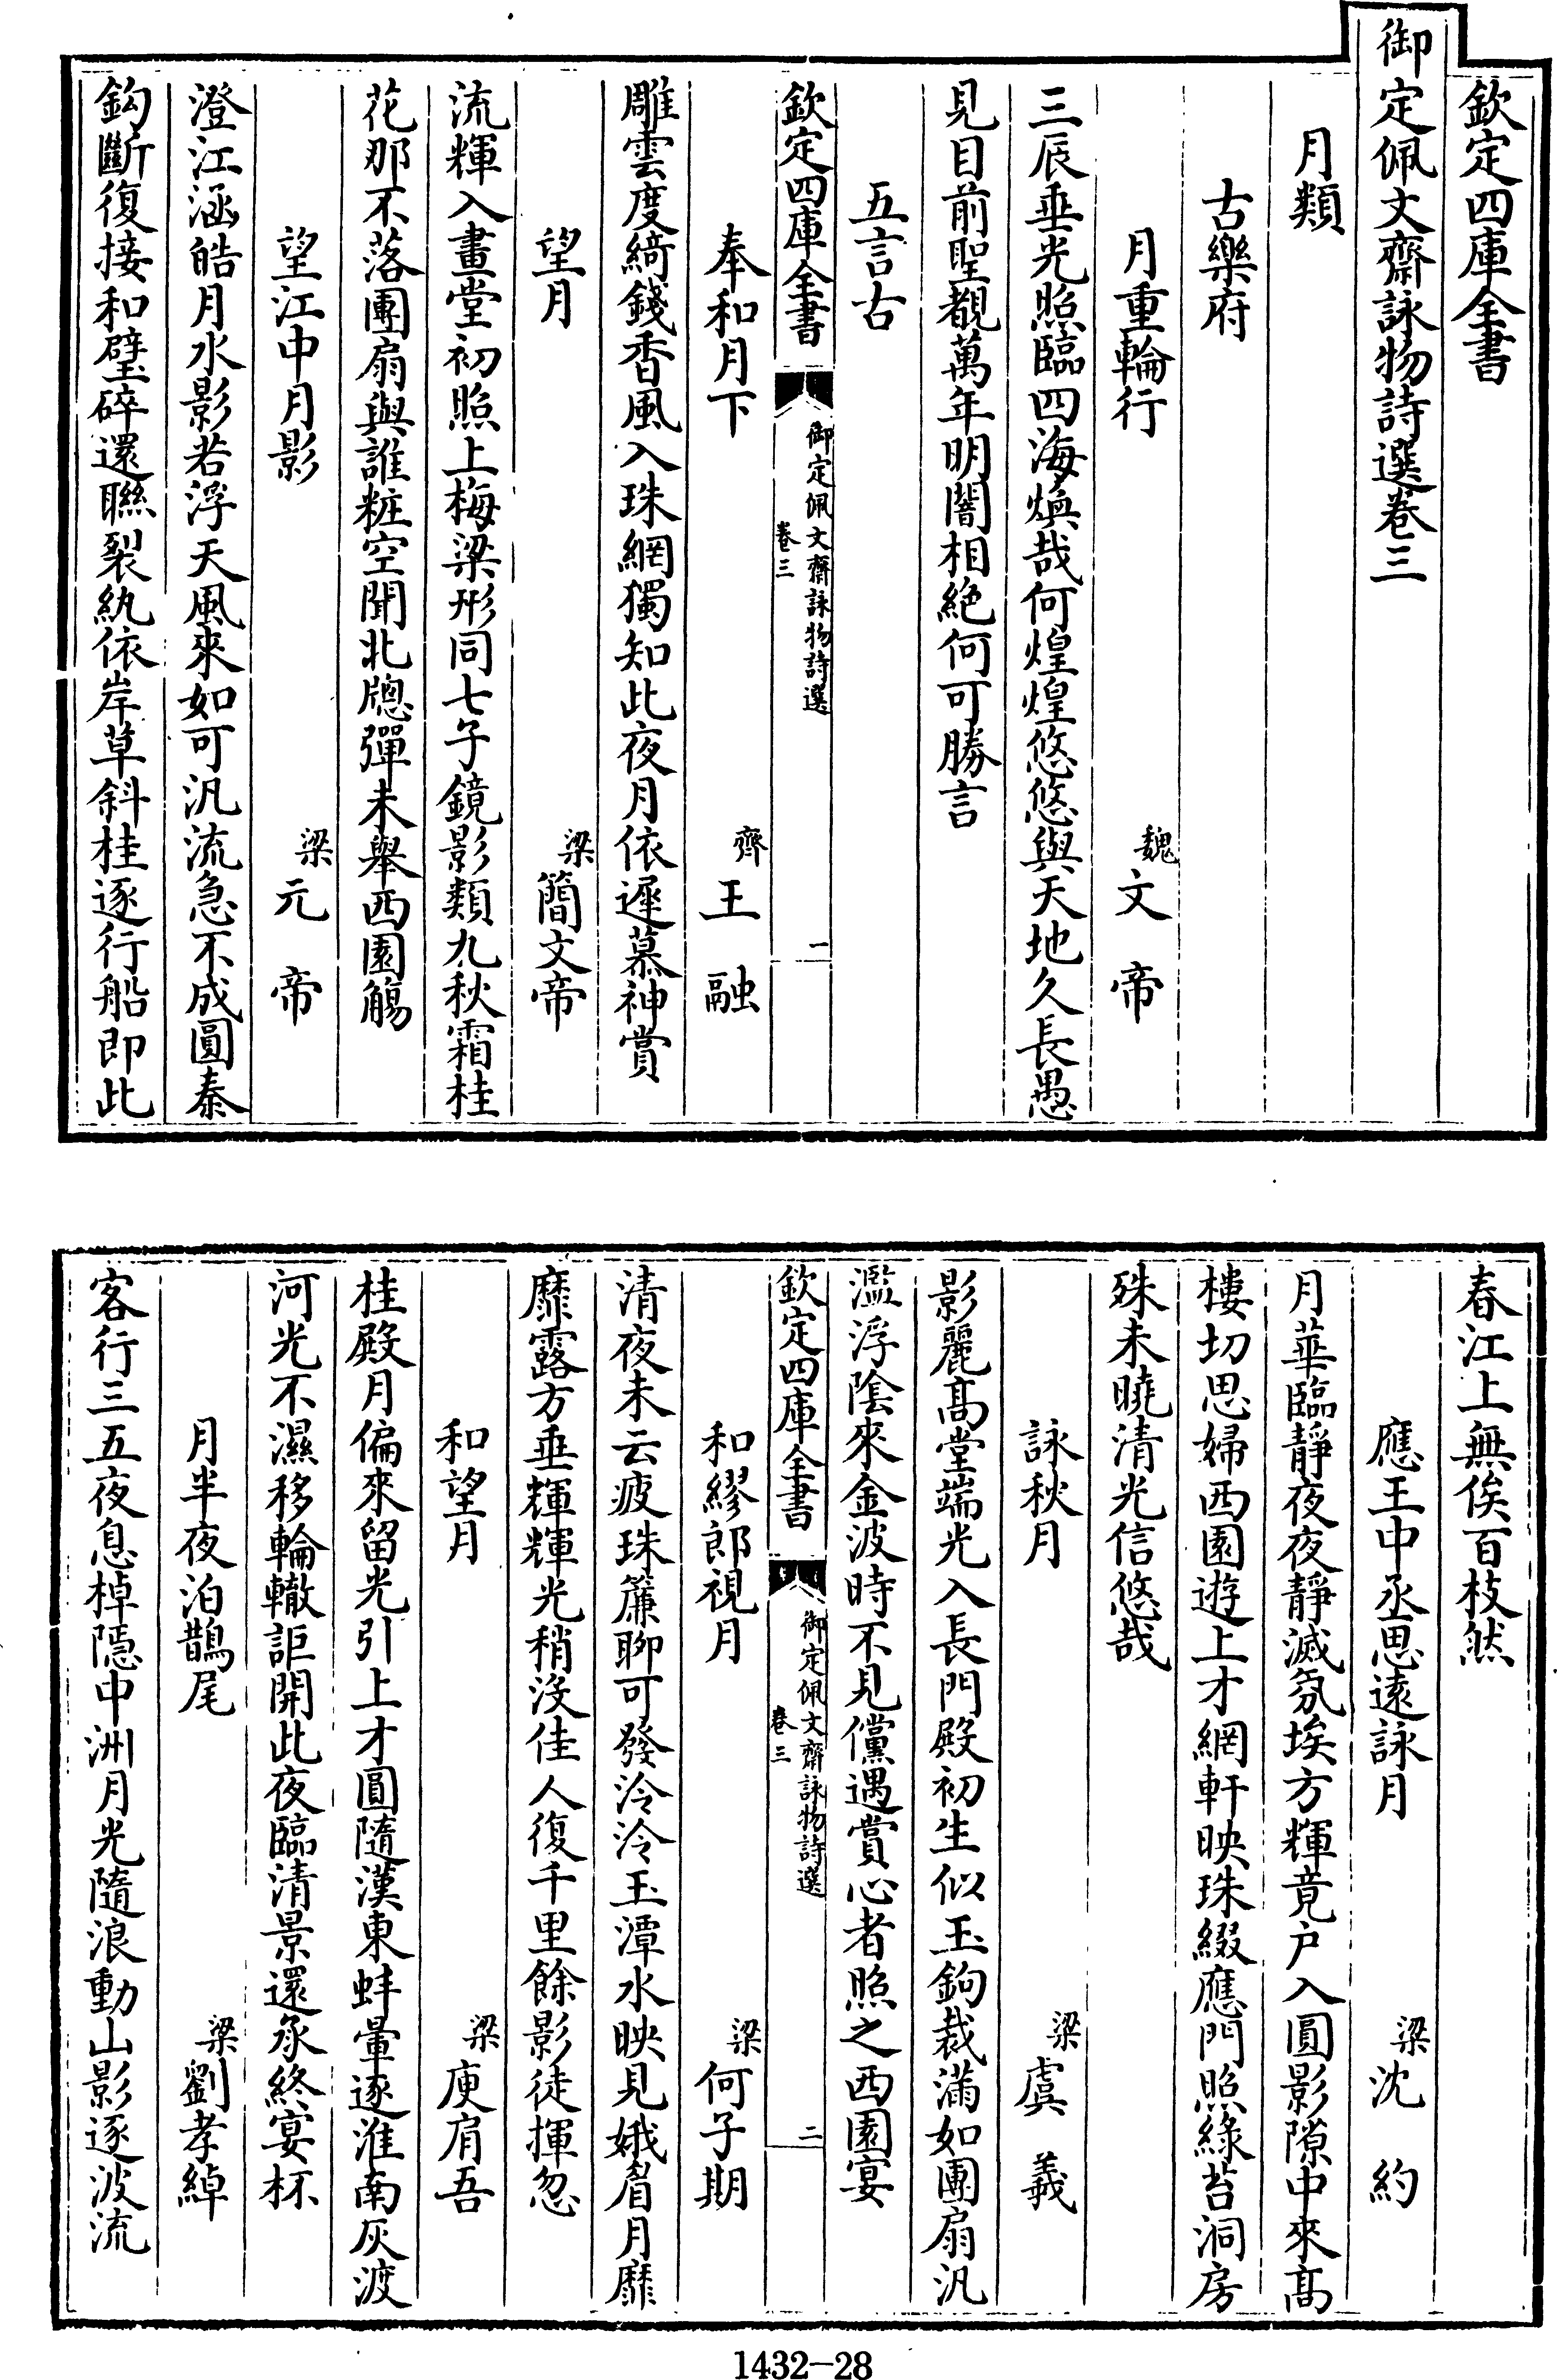 欽定四庫全書
御定佩文齋詠物詩選卷三
月類
古樂府
月重輪行
魏文帝
三辰垂光照臨四海煥哉何煌煌悠悠與天地久長愚
見目前聖覩萬年明闇相絶何可勝言
五言古
欽定四庫全書
御定佩文齋詠物詩選
卷三
一
奉和月下
齊王融
雕雲度綺錢香風入珠網獨知此夜月依遲慕神賞
望月
梁簡文帝
流輝入畫堂初照上梅梁形同七子鏡影類九秋霜桂
花那不落團扇與誰粧空聞北牕彈未舉西園觴
望江中月影
梁元帝
澄江涵皓月水影若浮天風來如可汎流急不成圓秦
鈎斷復接和璧碎還聯裂紈依岸草斜桂逐行船即此
春江上無俟百枝然
應王中丞思遠詠月
梁沈約
月華臨靜夜夜靜滅氛埃方輝竟户入圓影隙中來髙
樓切思婦西園遊上才網軒映珠綴應門照綠苔洞房
殊未曉清光信悠哉
詠秋月
梁虞羲
影麗髙堂端光入長門殿初生似玉鉤裁滿如團扇汎
濫浮陰來金波時不見儻遇賞心者照之西園宴
欽定四庫全書
御定佩文齋詠物詩選
卷三
二
和繆郎視月
梁何子期
清夜未云疲珠簾聊可發泠泠玉潭水映見娥眉月靡
靡露方垂輝輝光稍沒佳人復千里餘影徒揮忽
和望月
梁庾肩吾
桂殿月偏來留光引上才圓隨漢東蚌暈逐淮南灰渡
河光不濕移輪轍詎開此夜臨清景還承終宴杯
月半夜泊鵲尾
梁劉孝綽
客行三五夜息棹隱中洲月光隨浪動山影逐波流
1432-28